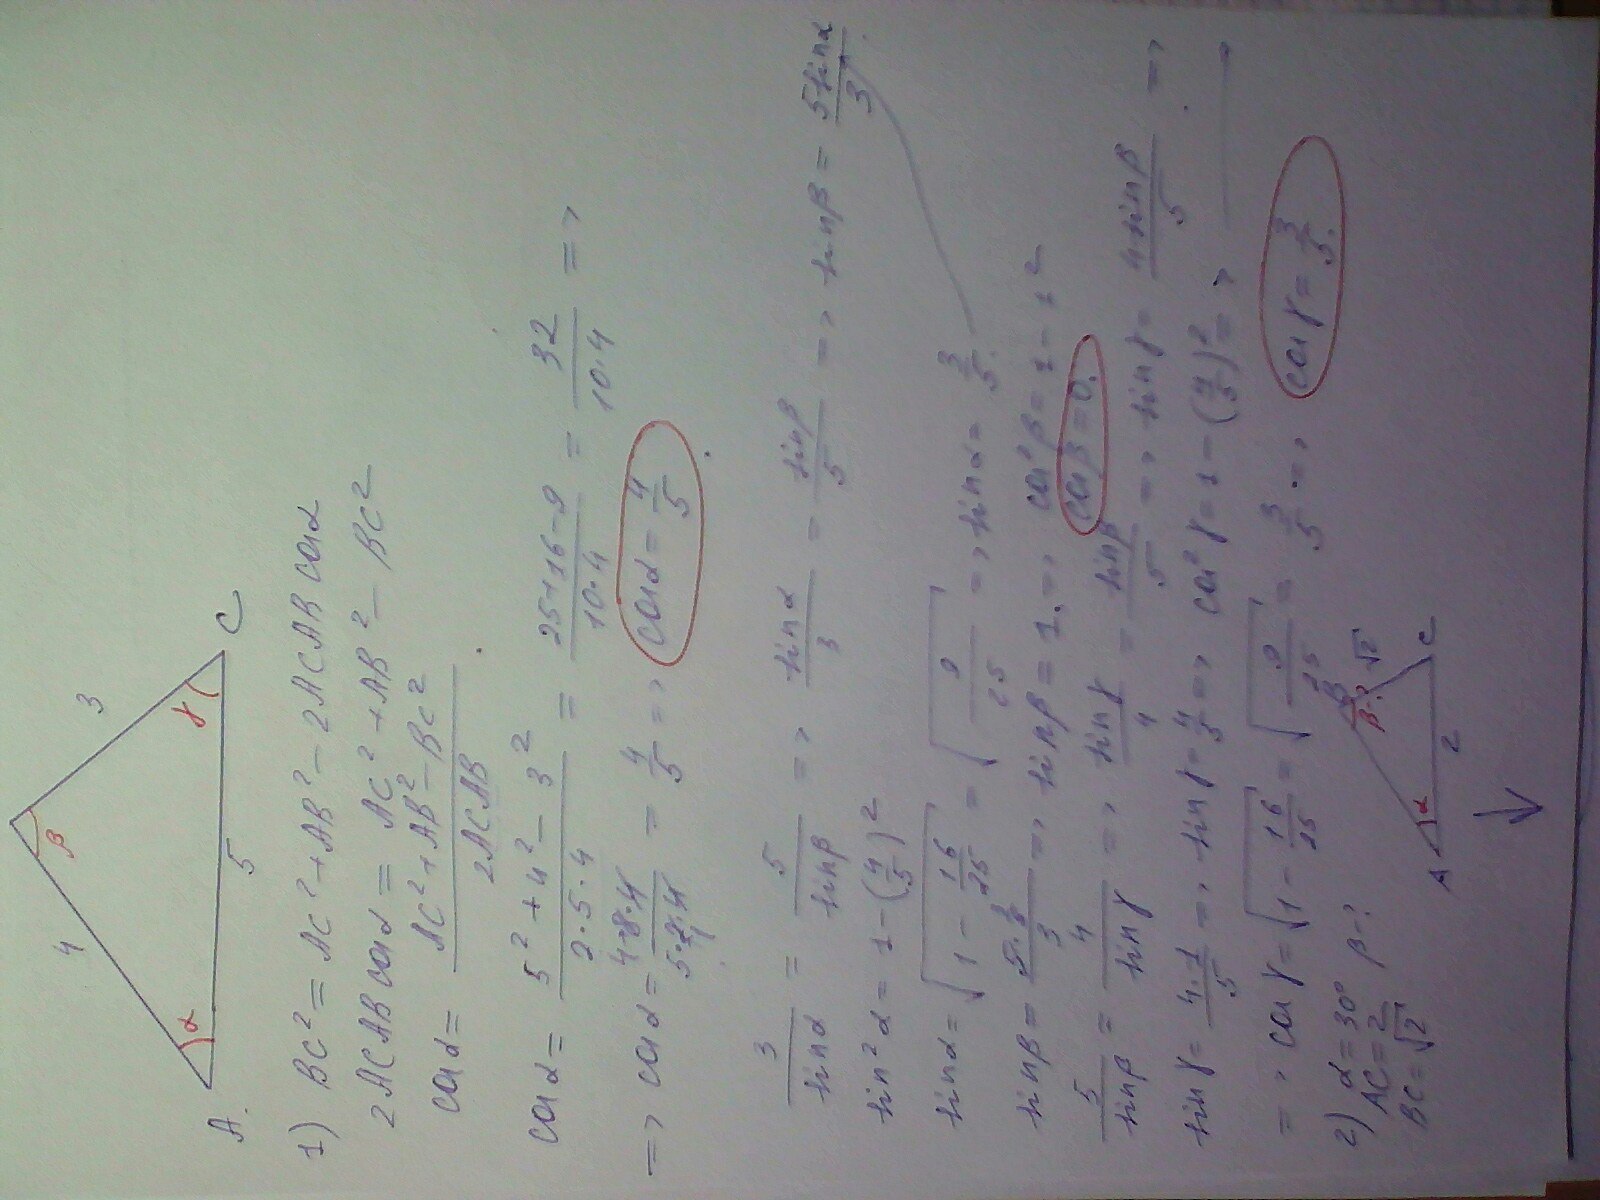 4
β
3
α
γ
A.
5
C
1) BC² = AC² + AB² - 2ACAB cosα
2ACAB cosα = AC² + AB² - BC²
cosα = (AC² + AB² - BC²)/(2ACAB).
cosα = (5² + 4² - 3²)/(2·5·4) = (25+16-9)/(10·4) = 32/(10·4) =>
=> cosα = = 4/5 => cosα = 4/5.
3/sinα = 5/sinβ => sinα/3 = sinβ/5 => sinβ = 5sinα/3.
sin²α = 1 - (4/5)²
sinα = √(1 - 16/25) = √(9/25) => sinα = 3/5.
sinβ = => sinβ = 1. => cos²β = 1 - 1²
cosβ = 0.
5/sinβ = 4/sinγ => sinγ/4 = sinβ/5 => sinγ = 4sinβ/5 . =>
sinγ = 4·1/5 => sinγ = 4/5 => cos²γ = 1 - (4/5)² =>
=> cosγ = √(1 - 16/25) = √(9/25) = 3/5 . => cosγ = 3/5.
2) α = 30° β - ?
AC = 2
BC = √2
A
α
B
β-?
√2
2
C